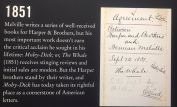 1851
Melville writes a series of well-received
books for Harper & Brothers, but his
most important work doesn't earn
the critical acclaim he sought in his
lifetime: Moby-Dick; or, The Whale
(1851) receives stinging reviews and
initial sales are modest. But the Harper
brothers stand by their wise investment.
Moby-Dick has today taken its rightful
place as a cornerstone of American
letters.
Agreement
Between
Harper and Brothers
and
Herman Melville
Sept 12 1851
The Whale